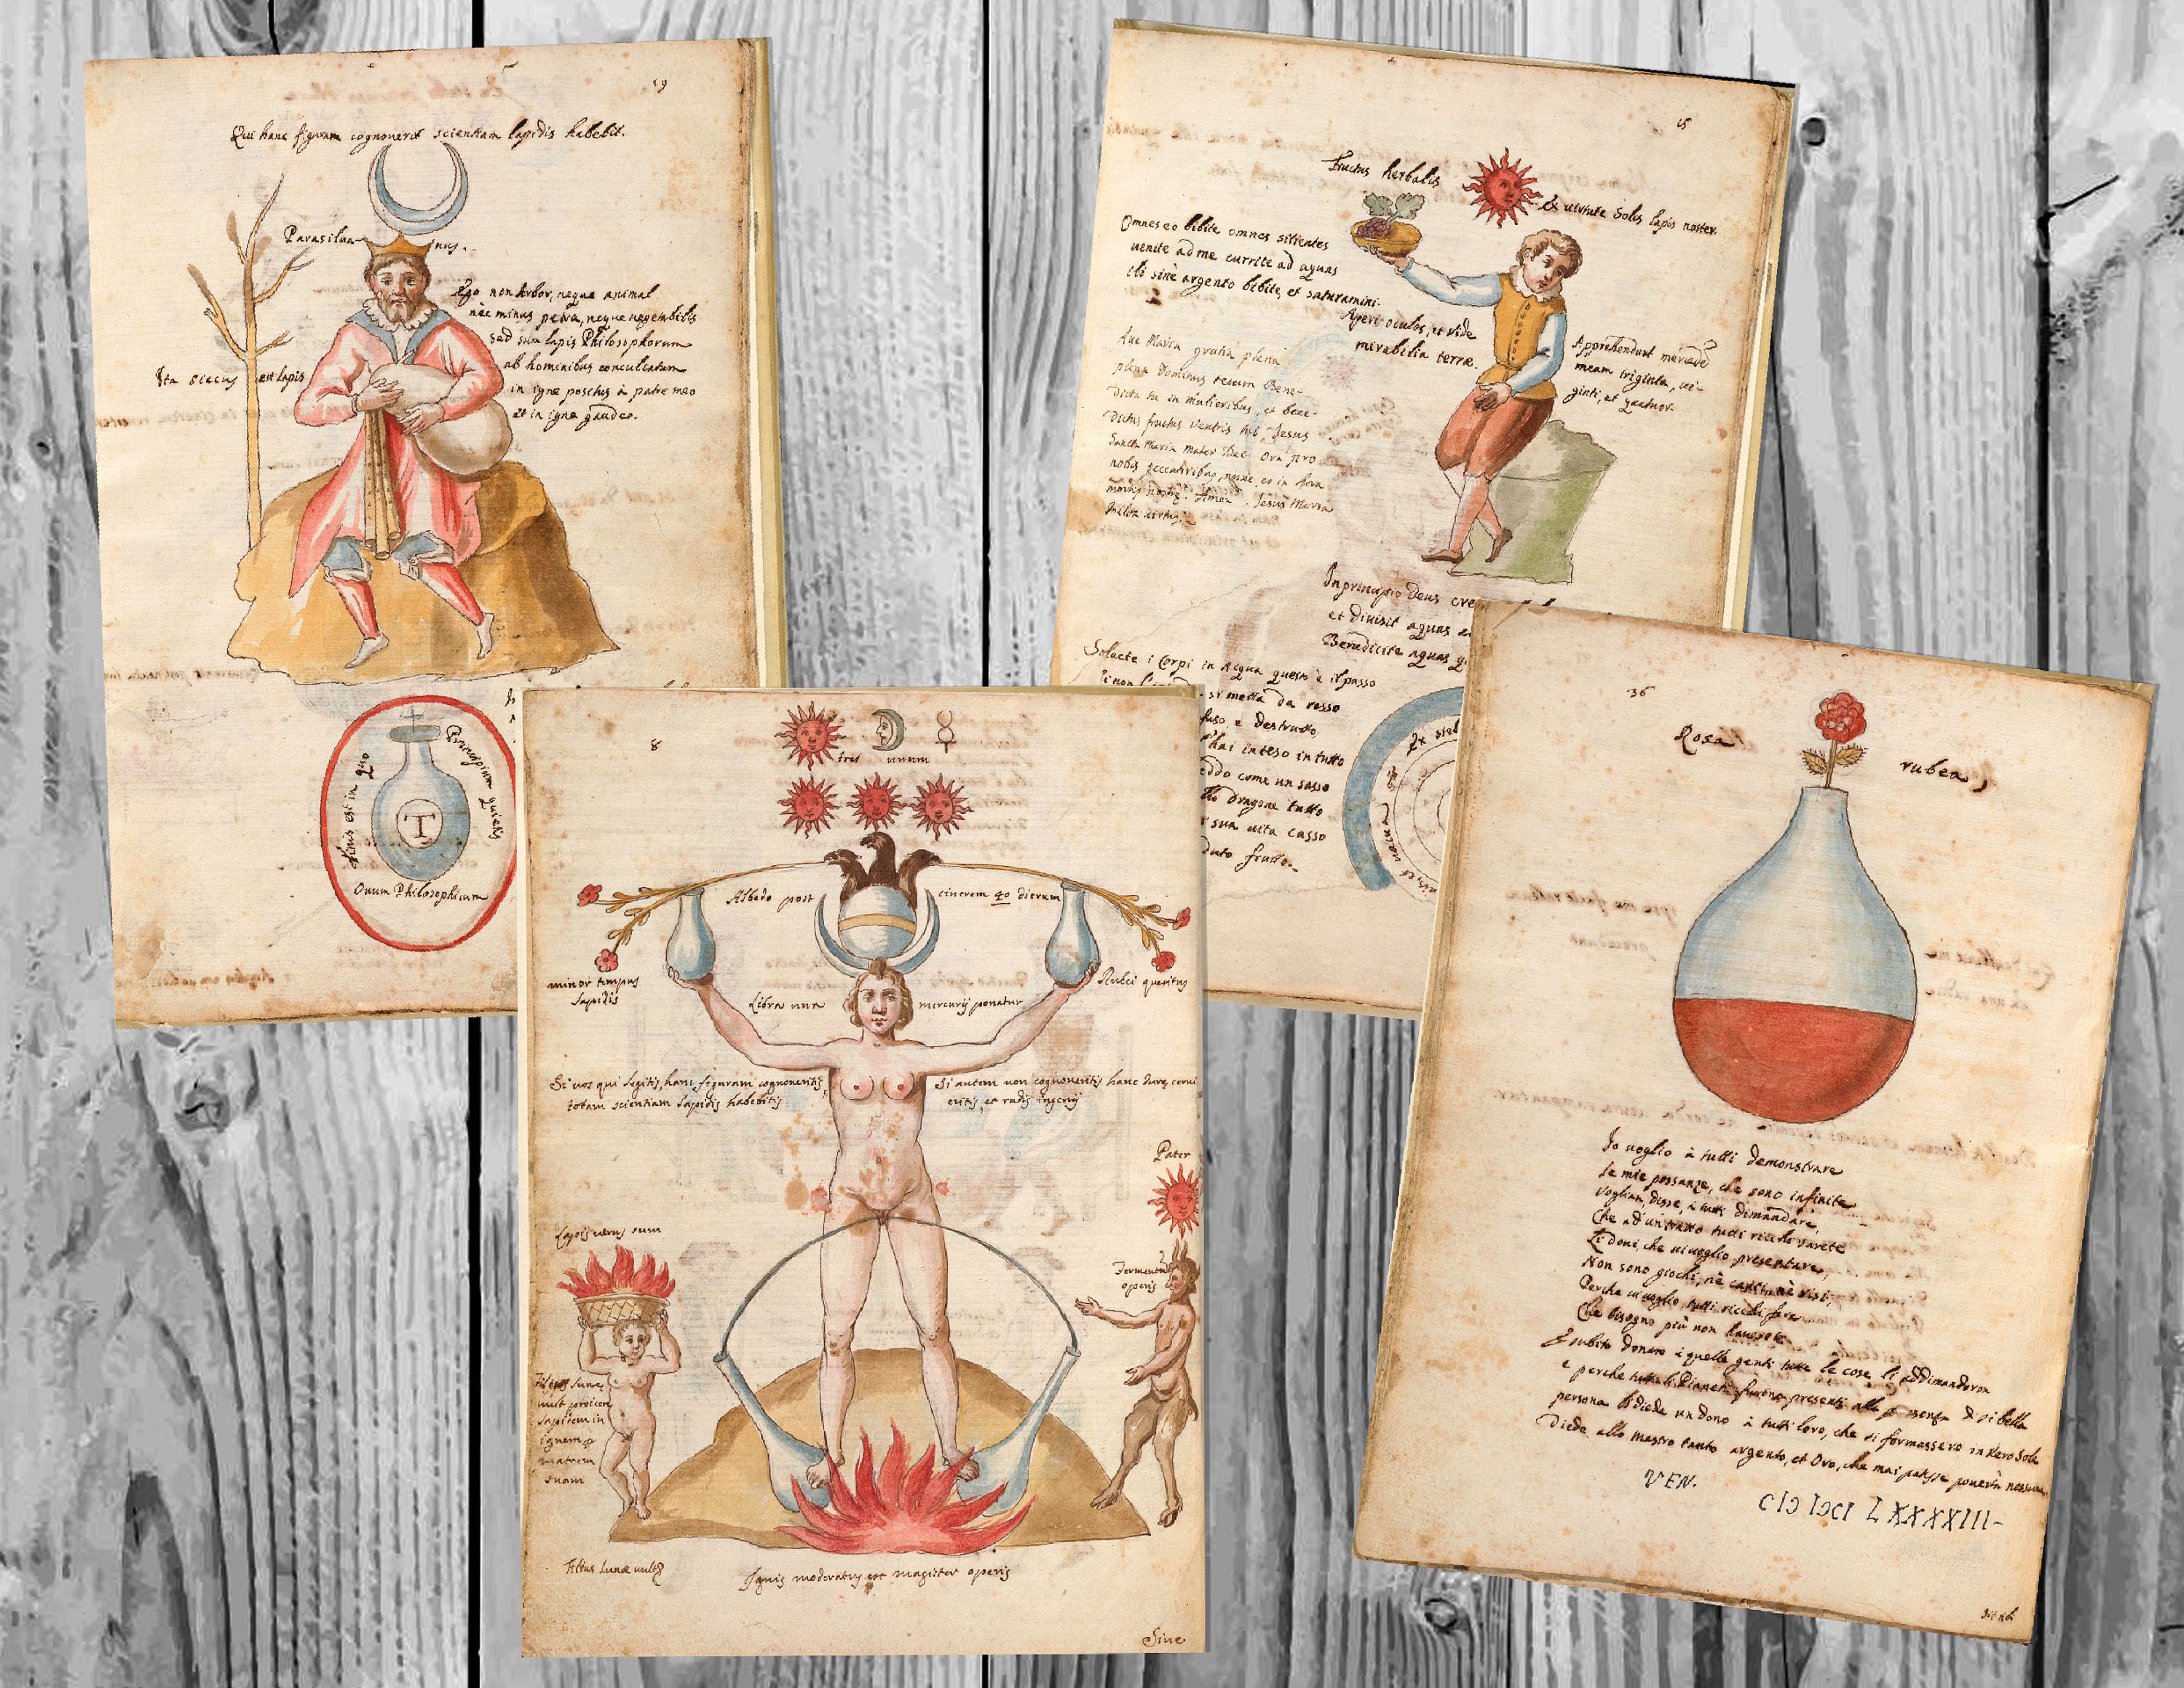 19
Qui hanc figuram cognoverit scientiam lapidis habebit.
Parasiluanus.
Ego non Arbor, neque animal
nèc minus petra, neque vegembilis
sed sum lapis Philosophorum
ab hominibus conculcatum
in igne à patre meo
et in igne gaudeo.
Ita occcus est lapis
Principium quietis
Finis est in quo
T
Ovum Philosophicum
15
Fructus herbalis
Ex virtute Solis lapis noster.
Omnes eo bibite omnes sitientes
uenite ad me currite ad aquas
ibi sinè argento bibite, et saturamini.
Aperi oculos, et vide
mirabilia terræ.
Apprehendunt mercedē
meam triginta, ui-
ginti, et quatuor.
Aue Maria gratia plena
plena Dominus tecum Bene-
dicta tu in mulieribus, et bene-
dictus fructus ventris tui, Jesus
Sancta Maria mater Dei Ora pro
nobis peccatribus, nunc, et in hora
mortis nostrę. Amen. Jesus Maria
In principio Deus cre
et diuisit aquas a
Benedicite aquas q
Soluete i Corpi in Acqua questo è il passo
si metta da rosso
fuso, e destrutto
hai inteso in tutto
eddo come un sasso
dragone tutto
sua uita casso
duto frutto.
8
tres unum
Albedo post cincrem 40 dierum
minor tempus
lapidis
Rubei queritus
Libra una mercurij ponatur
Si uos qui legitis, hanc figuram cognoueritis
totam scientiam lapidis habebitis
Si autem non cognoueritis hanc durę cerui
eritis, et rudis ingenij
Pater
Lapis uerus sum
Fermentū
operis
Filius lunę
uult proicere
lapidem in
ignem p
matrem
suam
Filius Lunæ uultq
Ignis moderatus est magister operis
Sine
36
Rosa rubea,
Io uoglio à tutti demonstrare
le mie possanze, che sono infinite
Vogliam, disse, à tutti dimandare,
Che ad un tratto tutti ricchi sarete
Li doni, che ui uoglio presentare,
Non sono giochi, nè canti, nè risi,
Perche ui uoglio tutti ricchi fare
Che bisogno più non hauerete
E subito donaro à quelle genti tutte le cose li addimandoron
e perche tutti li Pianeti furono presenti alla presenza di si bella
persona li diede un dono à tutti loro, che si formassero in uero Sole
Diede allo Mastro tanto argento, et Oro, che mai patisse pouertà nessuna.
VEN.
CIↃ IↃCI LXXXXIII-